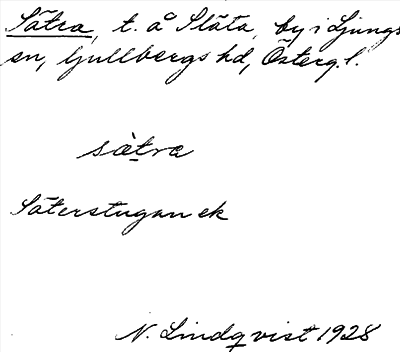 Sätra, t. å Släta, by i Ljungs
sn, Gullbergs hd, Österg. l.
sä̀tra
Säterstugan ek
N. Lindqvist 1928